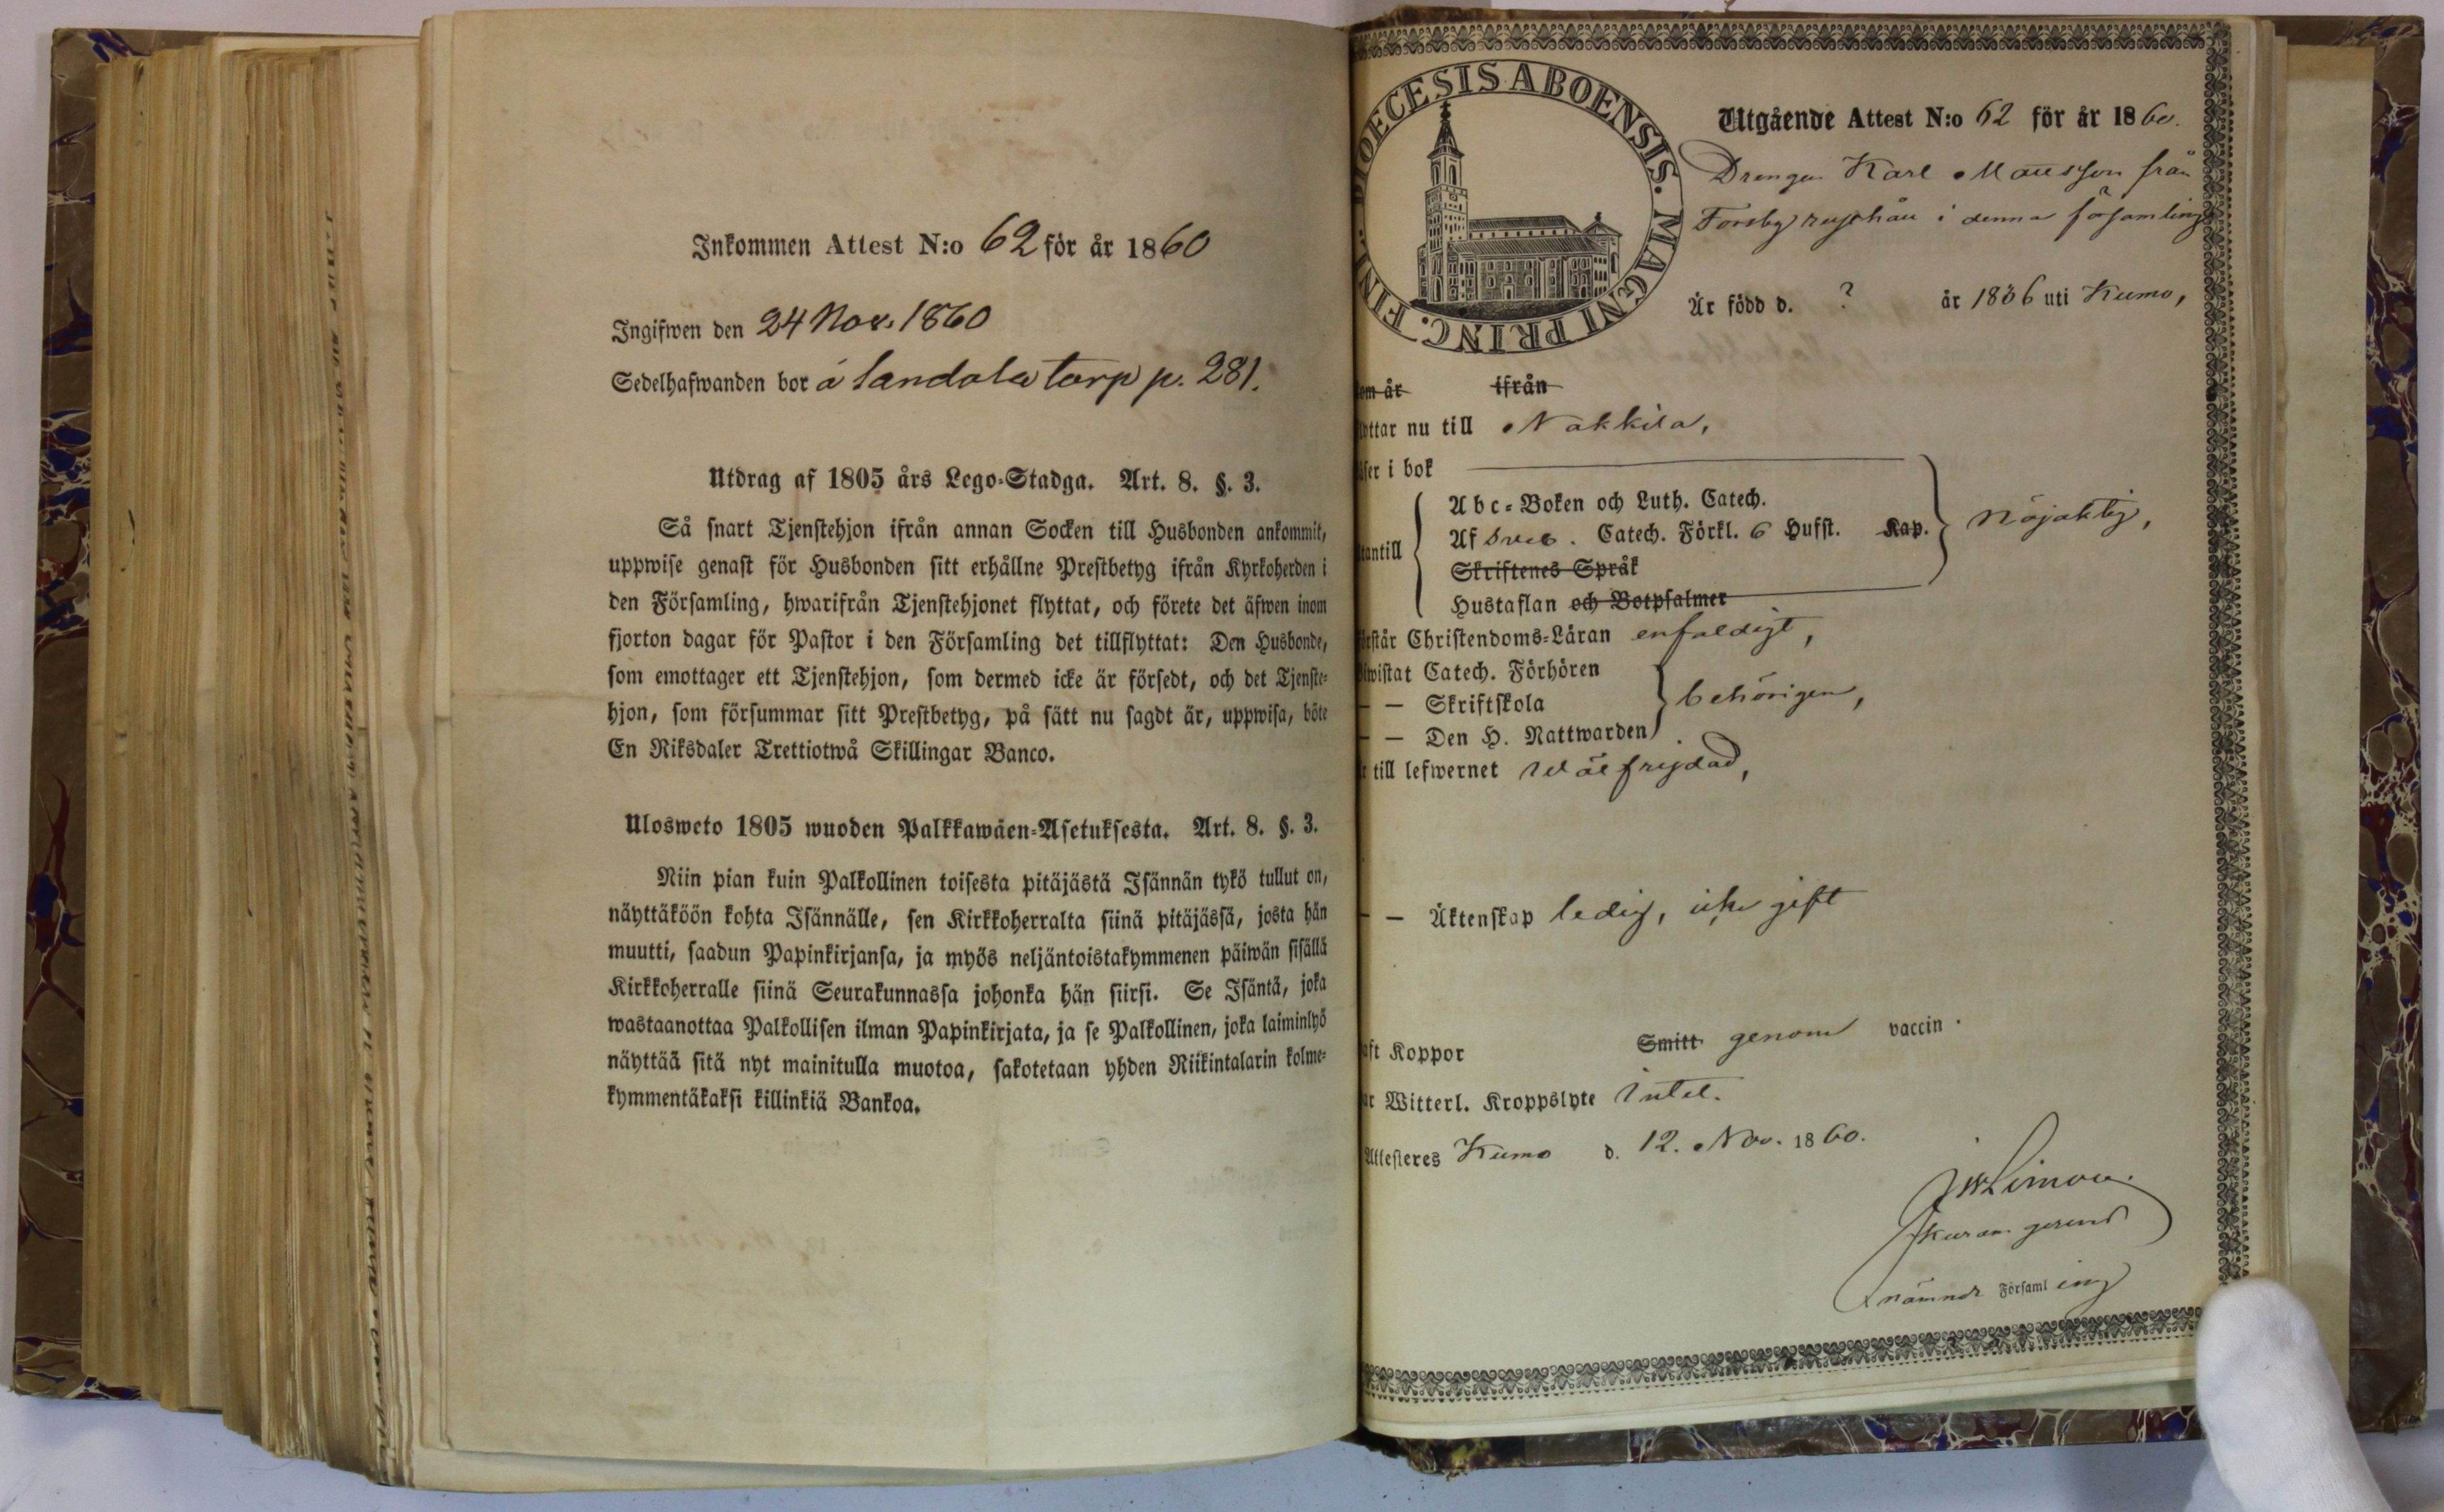 Inkommen Attest N:o 62 för år 1860
Ingifwen den 24 Nov. 1860
Sedelhafwanden bor å Landala torp p. 281.
Utdrag af 1805 års Lego-Stadga. Art. 8. §. 3.
Så snart Tjenstehjon ifrån annan Socken till Husbonden ankommit,
uppwise genast för Husbonden sitt erhållne Prestbetyg ifrån Kyrkoherden i
den Församling, hwarifrån Tjenstehjonet flyttat, och förete det äfwen inom
fjorton dagar för Pastor i den Församling det tillflyttat: Den Husbonde,
som emottager ett Tjenstehjon, som dermed icke är försedt, och det Tjenste-
hjon, som försummar sitt Prestbetyg, på sätt nu sagdt är, uppwisa, böte
En Riksdaler Trettiotwå Skillingar Banco.
Ulosweto 1805 wuoden Palkkawäen-Asetuksesta. Art. 8. §. 3.
Niin pian kuin Palkollinen toisesta pitäjästä Isännän tykö tullut on,
näyttäköön kohta Isännälle, sen Kirkkoherralta siinä pitäjässä, josta hän
muutti, saadun Papinkirjansa, ja myös neljäntoistakymmenen päiwän sisällä
Kirkkoherralle siinä Seurakunnassa johonka hän siirsi. Se Isäntä, joka
wastaanottaa Palkollisen ilman Papinkirjata, ja se Palkollinen, joka laiminlyö
näyttää sitä nyt mainitulla muotoa, sakotetaan yhden Riikintalarin kolme-
kymmentäkaksi killinkiä Bankoa.
DIOECESIS ABOENSIS. MAGNI PRINC. FINL.
Utgående Attest N:o 62 för år 1860.
Drengen Karl Matsson från
Forsby i denna församling
Är född d. ? år 1836 uti Kumo,
om år ifrån
yttar nu till Nakkila,
äser i bok
Abc-Boken och Luth. Catech.
Af Sveb. Catech. Förkl. 6 Hufst. Kap.
nöjaktig,
tantill
Skriftenes Språk
Hustaflan och Botpsalmer
rstår Christendoms-Läran enfaldigt,
iwistat Catech. Förhören
— — Skriftskola
behörigen,
— — Den H. Nattwarden
r till lefwernet wälfrejdad,
— — Äktenskap ledig, icke gift
aft Koppor Smitt genom vaccin.
ar Witterl. Kroppslyte intet.
Attesteres Kumo d. 12. Nov. 1860.
nämnde Församling